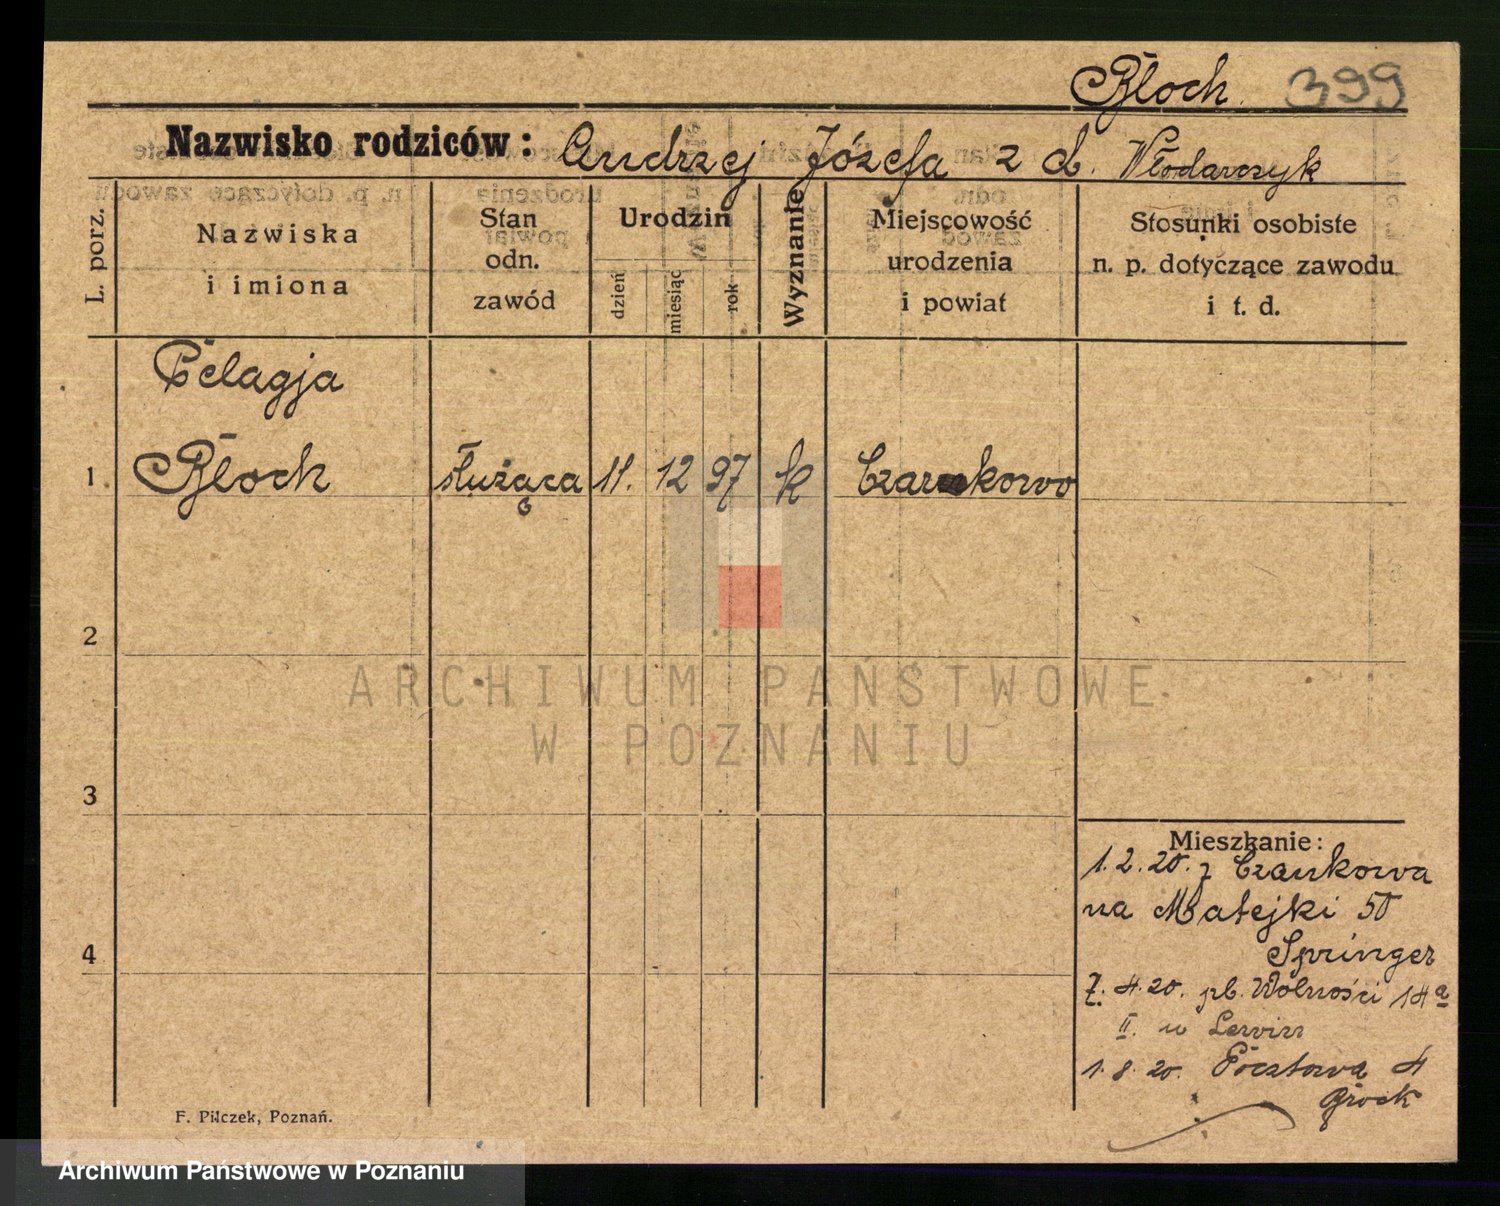 Bloch. 399
Nazwisko rodziców: Andrzej Józefa z d. Włodarczyk
L. porz.
Nazwiska
i imiona
Stan
odn.
zawód
Urodzin
dzień
miesiąc
rok
Wyznanie
Miejscowość
urodzenia
i powiat
Stosunki osobiste
n. p. dotyczące zawodu
i t. d.
Pelagja
1 Bloch służąca 11. 12 97 k Czarnkowo
2
3
4
Mieszkanie:
1. 2. 20. z Czarnkowa
na Matejki 50
Springer
7. 4. 20. pl. Wolności 14a
II. u Lewin
1. 8. 20. Pocztowa 4
F. Pilczek, Poznań.
ARCHIWUM PAŃSTWOWE
W POZNANIU
Archiwum Państwowe w Poznaniu